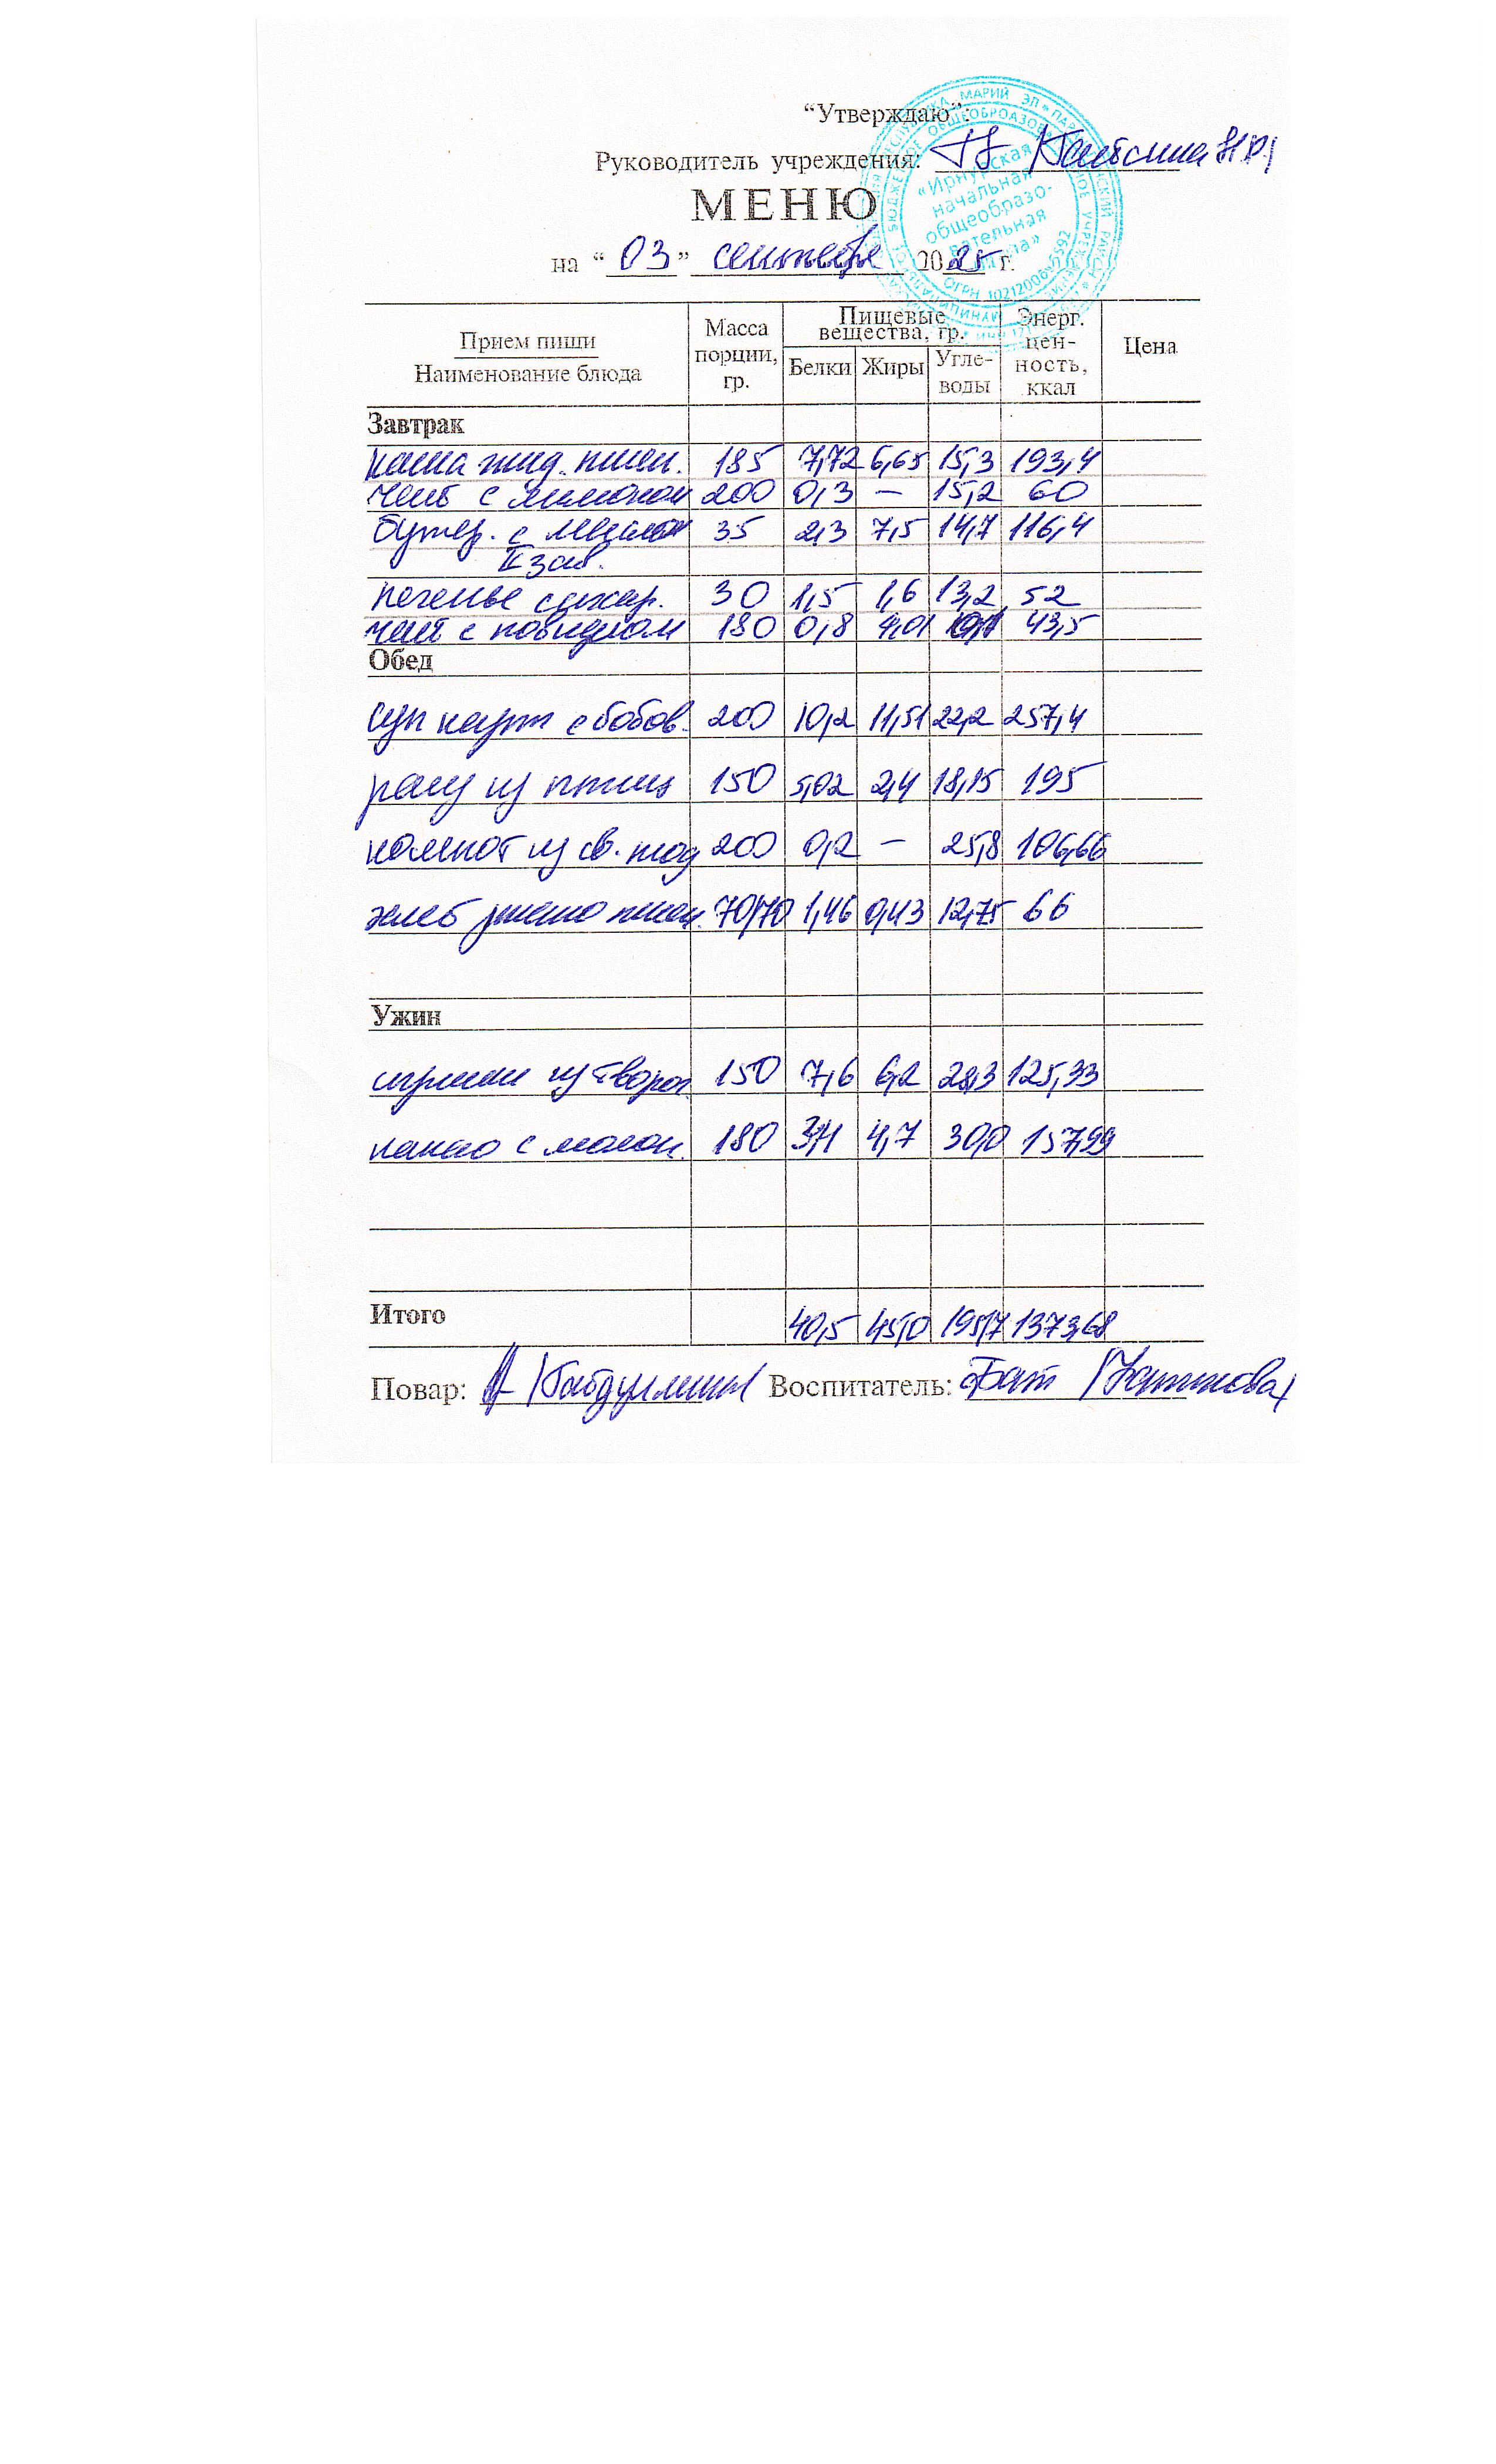 “Утверждаю”:
Руководитель учреждения:
МЕНЮ
на “03” сентября 2025 г.
«Ирнурская
начальная
общеобразо-
вательная
школа»
Прием пищи
Наименование блюда
Масса порции, гр.
Пищевые вещества, гр.
Белки Жиры Угле-воды
Энерг. цен-ность, ккал
Цена
Завтрак
каша жид. пшен. 185 7,72 6,65 15,3 193,4
чай с лимоном 200 0,3 — 15,2 60
бутер. с маслом 35 2,3 7,5 14,7 116,4
II зав.
печенье сахар. 30 1,5 1,6 13,2 52
чай с повидлом 180 0,8 4,01 43,5
Обед
суп карт с бобов. 200 10,2 11,51 22,2 257,4
рагу из птиц 150 5,02 2,4 18,15 195
компот из св. плод 200 0,2 — 25,8 106,66
хлеб ржано пшен. 70/70 1,46 0,43 12,75 66
Ужин
сырники из творог. 150 7,6 6,2 28,3 125,33
какао с молок. 180 4,7 30,0 157,99
Итого 40,5 45,0 195,7 1373,68
Повар: Воспитатель: